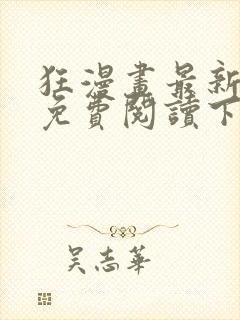 狂漫畫最新
免費閱讀下
吳志華